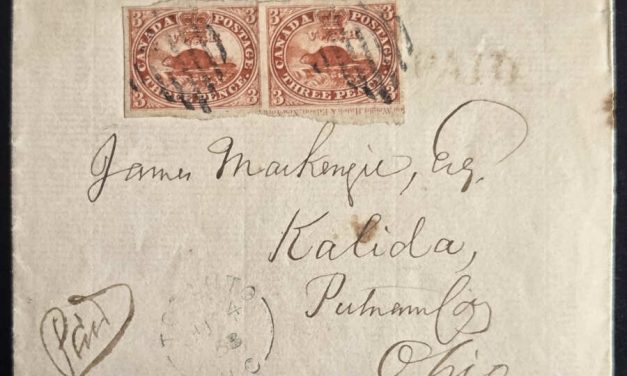 3 CANADA POSTAGE 3
3 THREE PENCE 3
3 CANADA POSTAGE 3
3 THREE PENCE 3
PAID
James Mackenzie, Esq.
Kalida,
Putnam Co
Ohio
Paid